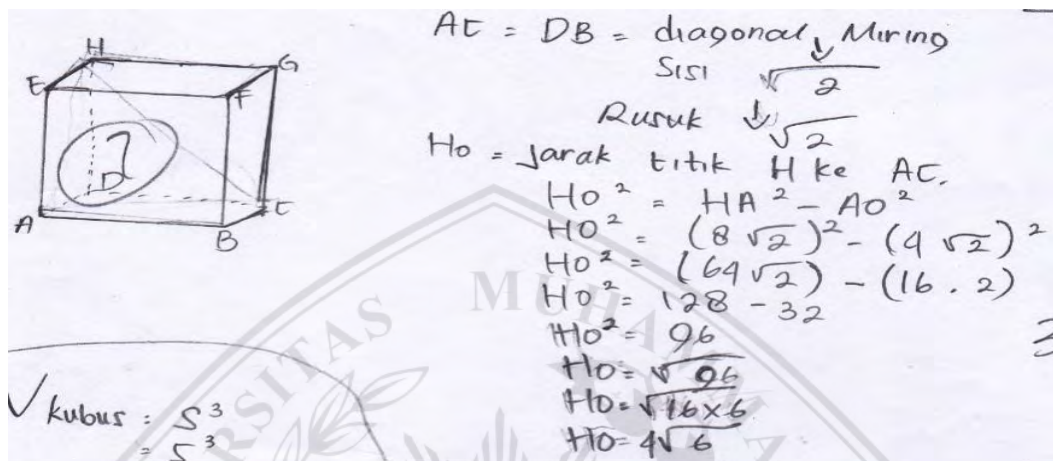 H
G
E
F
D
A
B
C
?
AC = DB = diagonal, Miring
Sisi √2
Rusuk √2
Ho = Jarak titik H ke AC.
Ho² = HA² - AO²
HO² = (8 √2)² - (4 √2)²
HO² = (64√2) - (16 . 2)
HO² = 128 - 32
HO² = 96
HO = √96
HO = √16×6
HO = 4√6
√ kubus = S³
= S³
MUHA
RSITAS